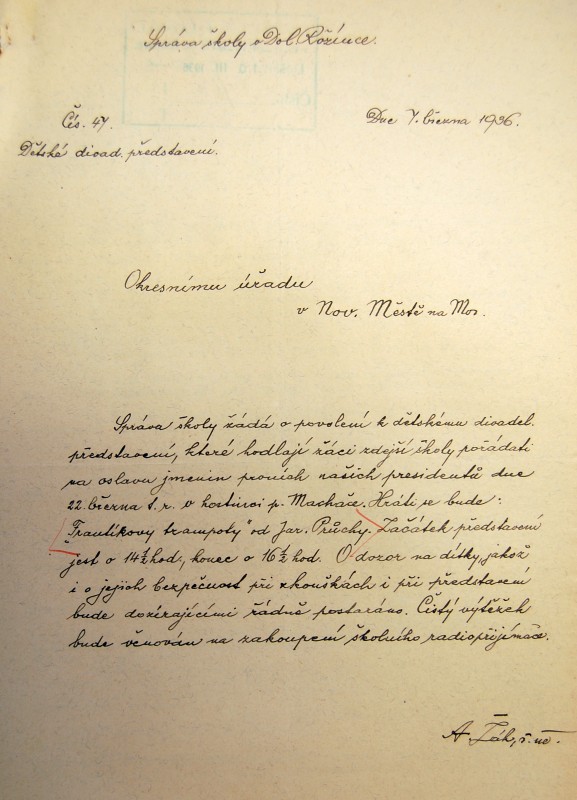 Správa školy v Dol. Rožínce.
Čís. 47.
Dne 7. března 1936.
Dětské divad. představení.
Okresnímu úřadu
v Nov. Městě na Mor.
Správa školy žádá o povolení k dětskému divadel.
představení, které hodlají žáci zdejší školy pořádati
na oslavu jmenin prvních našich presidentů dne
22. března t. r. v hostinci p. Machače. Hráti se bude:
"Frantíkovy trampoty" od Jar. Průchy. Začátek představení
jest o 14 ½ hod., konec o 16 ½ hod. O dozor na dítky, jakož
i o jejich bezpečnost při zkouškách i při představení
bude dozírajícími řádně postaráno. Čistý výtěžek
bude věnován na zakoupení školního radiopřijímače.
A. Žák, ř. uč.